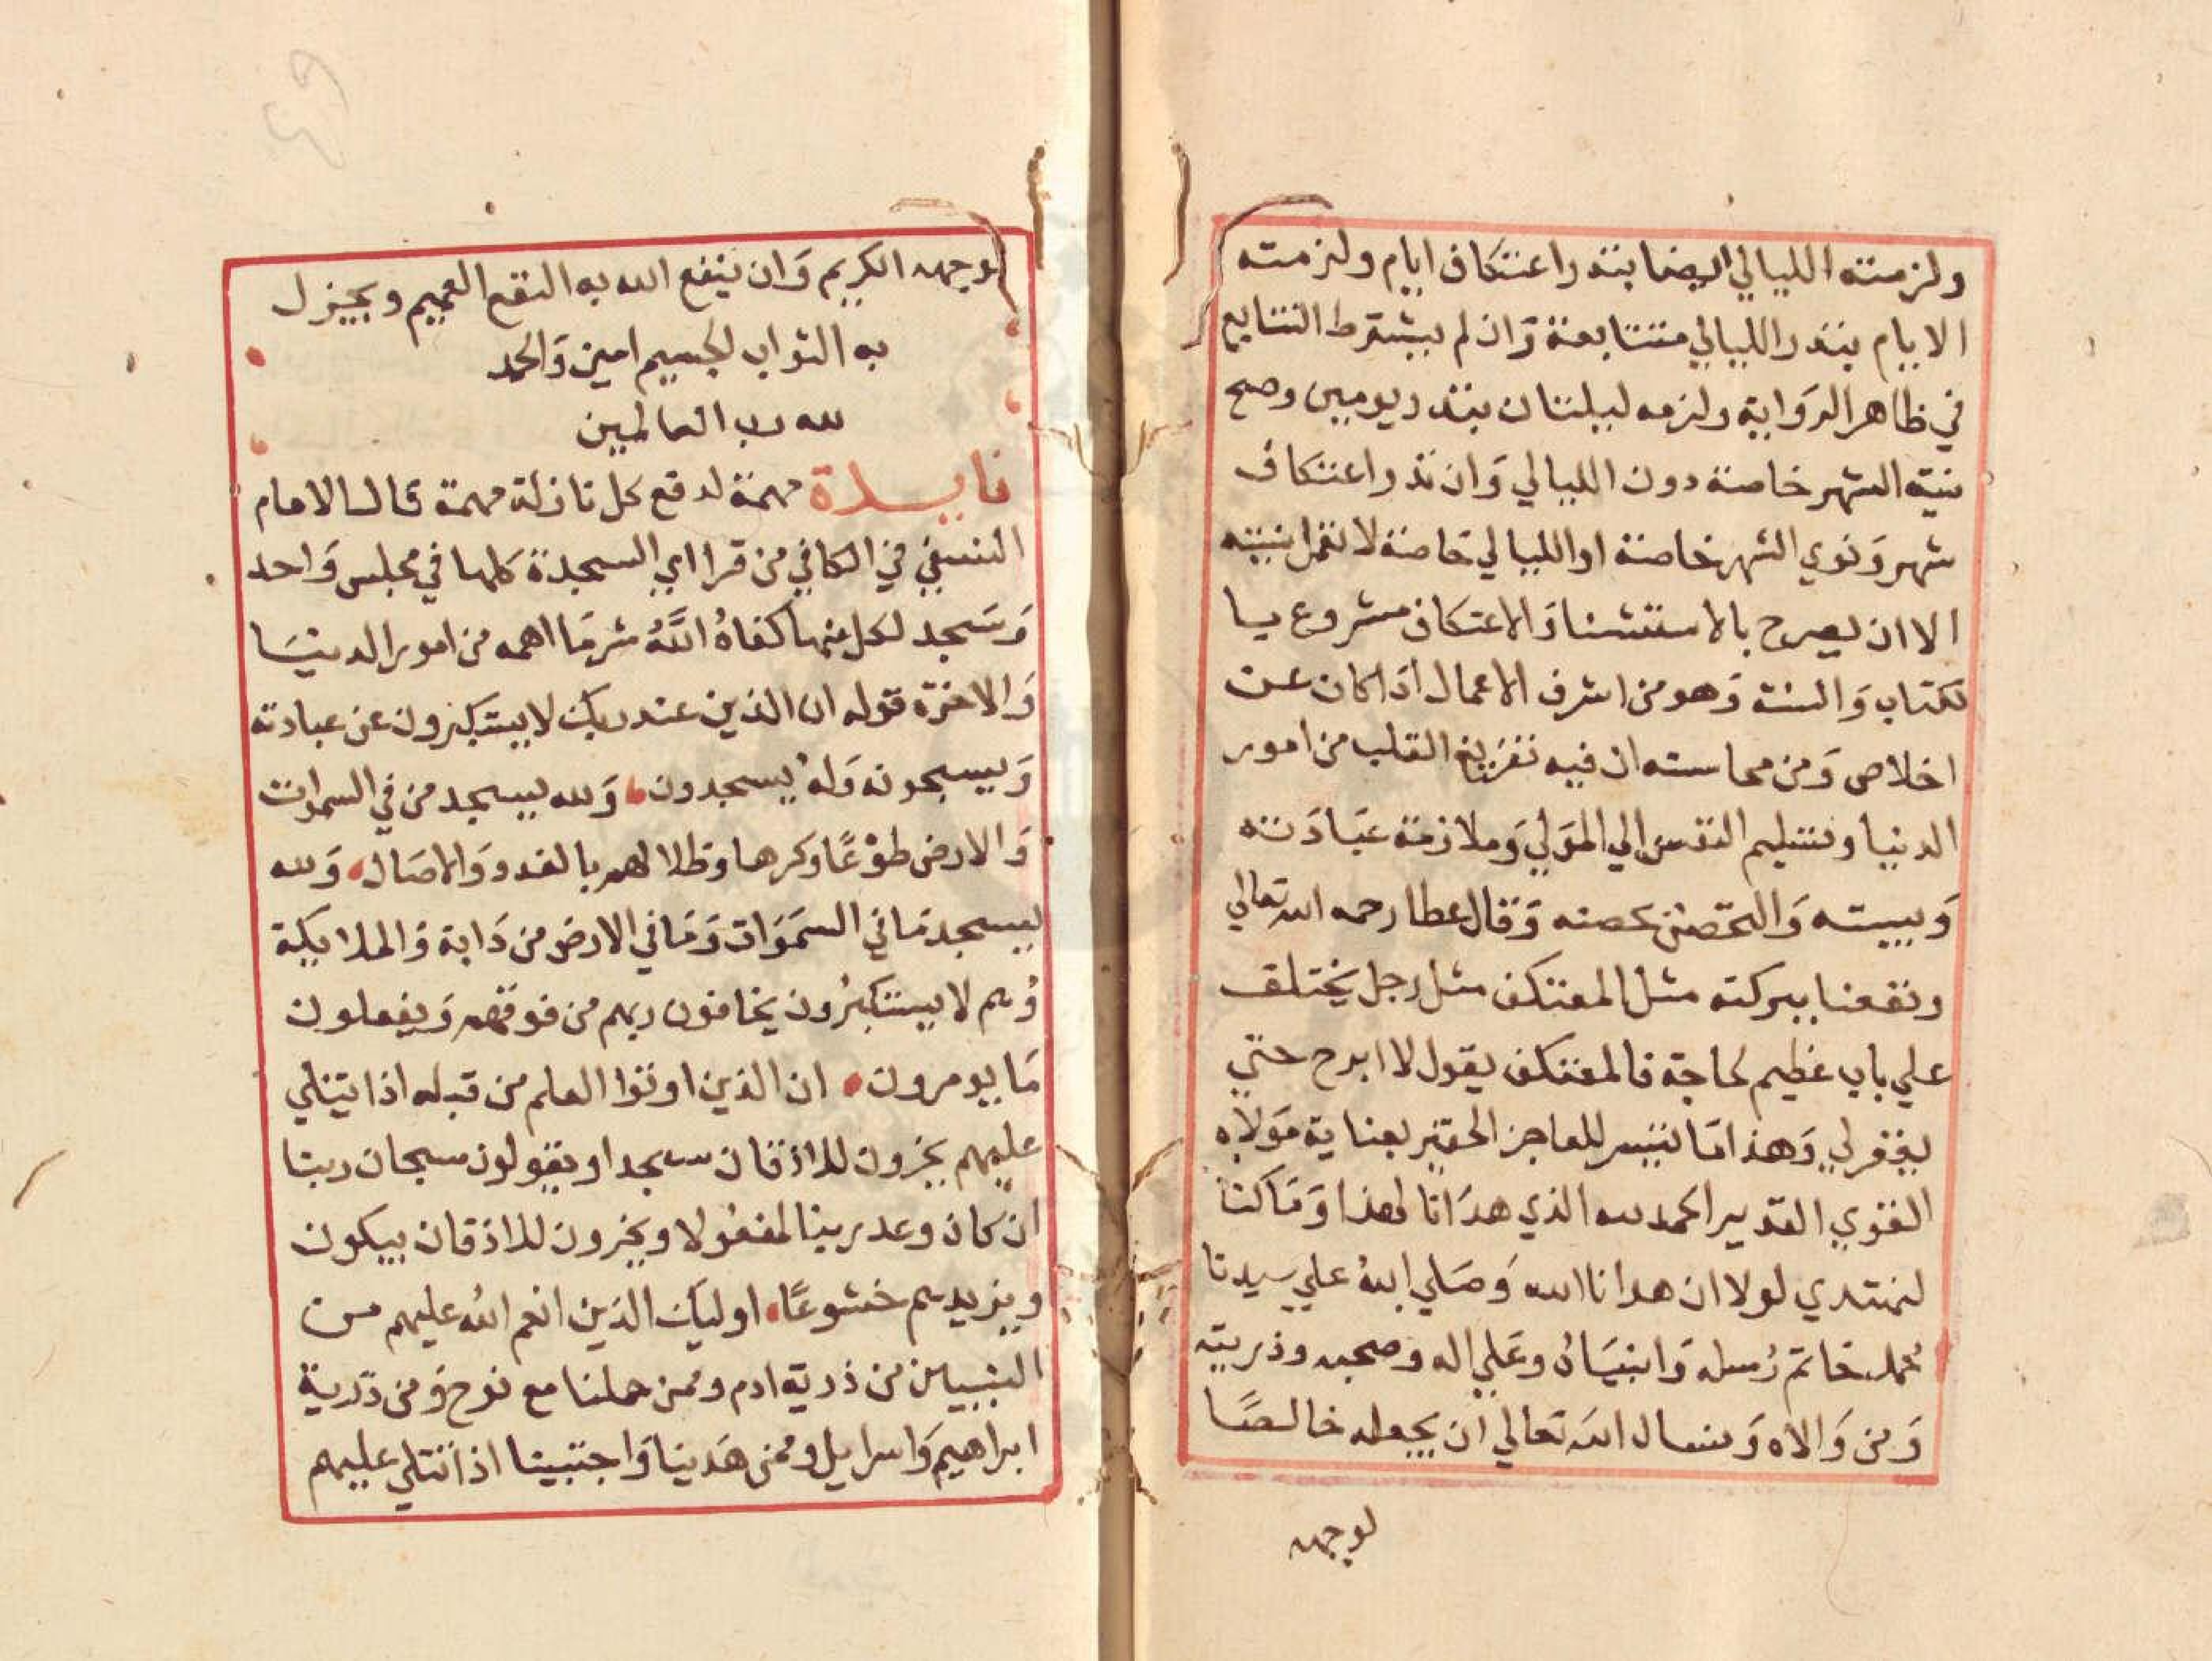 ولزمته الليالي ايضا بنذر اعتكاف ايام ولزمته
الايام بنذر الليالي متتابعة وَان لم يشترط التتابع
في ظاهر الروَاية ولزمه ليلتان بنذر يومين وصح
نية الشهر خاصة دون الليالي وَان نذر اعتكاف
شهر وَنوي الشهر خاصة او الليالي خاصة لا تعمل نيته
الا ان يصرح بالاستثنا وَالاعتكاف مشروع با
لكتاب وَالسنة وَهو من اشرف الاعمال اذا كان عن
اخلاص وَمن محاسنه ان فيه تفريغ القلب من امور
الدنيا وتسليم النفس الي المَولي وَملازمة عبَادَته
وَبيته وَالتحصن بحصنه وَقال عطا رحمه الله تعالي
ونفعنا ببركته مثل المعتكف مثل رجل يختلف
علي باب عظيم لحاجة فالمعتكف يقول لا ابرح حتي
يغفر لي وَهذا مَا تيسر للعاجز الحقير بعناية مَولاه
القوي القدير الحمد لله الذي هدَانا لهذا وَمَا كنا
لنهتدي لولا ان هدانا الله وَصَلي اللهُ علي سيدنا
محمد خاتم رُسله وَانبيَائه وعَلي اله وصحبه وذريته
وَمن وَالاه وَنسال الله تعالي ان يجعله خالصًا
لوجهه
لوجهه الكريم وَان ينفع الله به النفع العميم ويجزل
به الثواب الجسيم امين وَالحمد
لله رب العالمين
فايدة مهمة لدفع كل نازلة مهمة قال الامام
النسفي في الكافي من قرا اي السجدة كلها في مجلس وَاحد
وَسَجد لكل منها كفاهُ اللَّهُ شر مَا اهمه من امور الدنيَا
وَالاخرة قوله ان الذين عند ربك لا يستكبرون عن عبادته
وَيسبحونه وَلهُ يسجدون وَلله يسجد من في السموات
وَالارض طوْعًا وكرها وظلالهم بالغدو وَالاصَال وَلله
يسجد مَا في السمَوَات وَمَا في الارض من دَابة وَالملايكة
وَهم لا يستكبرُون يخافون ربهم من فوقهم وَيفعلون
مَا يومرون ان الذين اوتوا العلم من قبله اذا يتلي
عليهم يخرون للاذقان سجدا ويقولون سبحان ربنا
ان كان وعد ربنا لمفعُولا ويخرون للاذقان يبكون
ويزيدهم خشوعًا اوليك الذين انعم اللهُ عليهم من
النبيين من ذرية ادم وممن حملنا مع نوح وَمن ذرية
ابراهيم وَاسرايل وممن هَدينا وَاجتبينا اذا تتلي عليهم